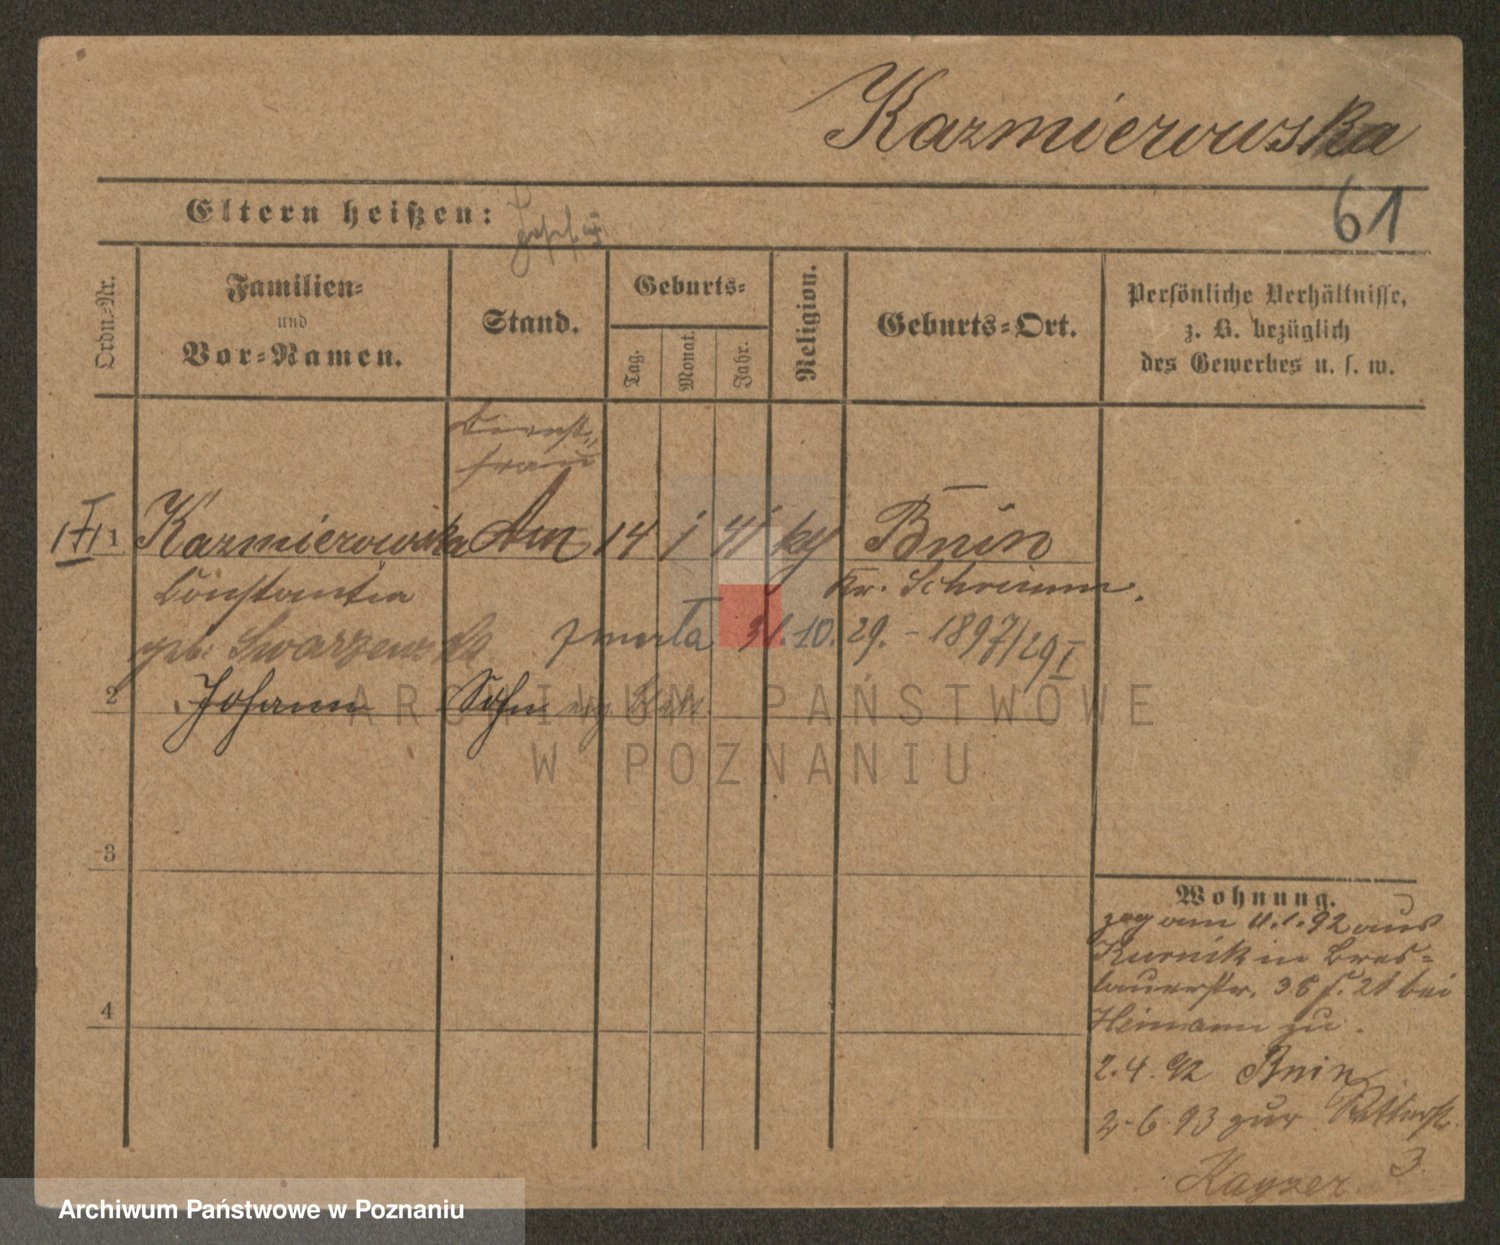 Kazmierowska
61
Eltern heißen:
Ordn.-Nr.
Familien-
und
Vor-Namen.
Stand.
Geburts-
Tag.
Monat.
Jahr.
Religion.
Geburts-Ort.
Persönliche Verhältnisse,
z. B. bezüglich
des Gewerbes u. s. w.
Dienst-
frau
1 Kazmierowska 14 1 41 Bnin
Constantia Kr. Schrimm.
geb. zmarła 31.10.29. - 1897/29 I
2 Johann Sohn
ARCHIWUM PAŃSTWOWE
W POZNANIU
3
4
Wohnung.
zog am 11.1.92 aus
Kurnik in Bres-
lauerstr. 38 bei
Heimann zu.
2.4.92 Bnin
2.6.93 zur Ritterstr.
3.
Kayser
Archiwum Państwowe w Poznaniu